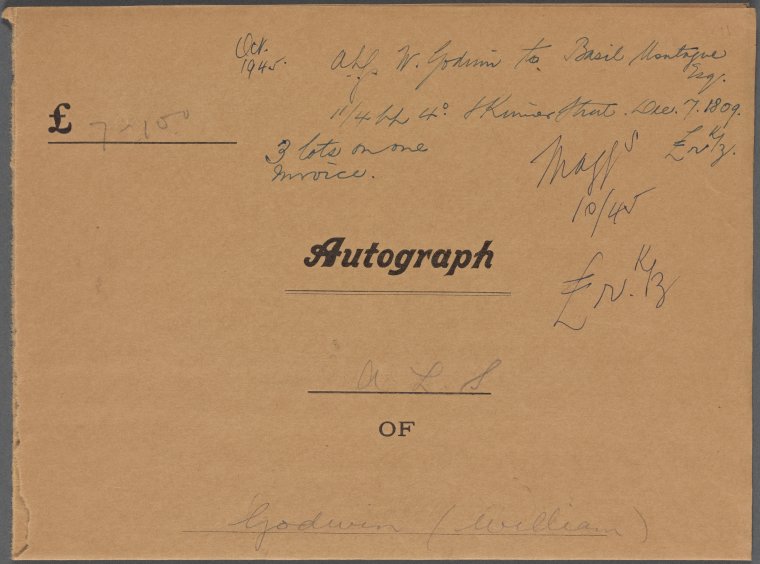 Oct. 1945.
A.L.S. W. Godwin to Basil Montague Esq.
1 1/4 pp 4º. Skinner Street. Dec. 7. 1809.
£ 7-10
3 lots on one
invoice.
Maggs
10/45
£ rv. K/z.
£ rv. K/z
Autograph
A L S
OF
Godwin (William)